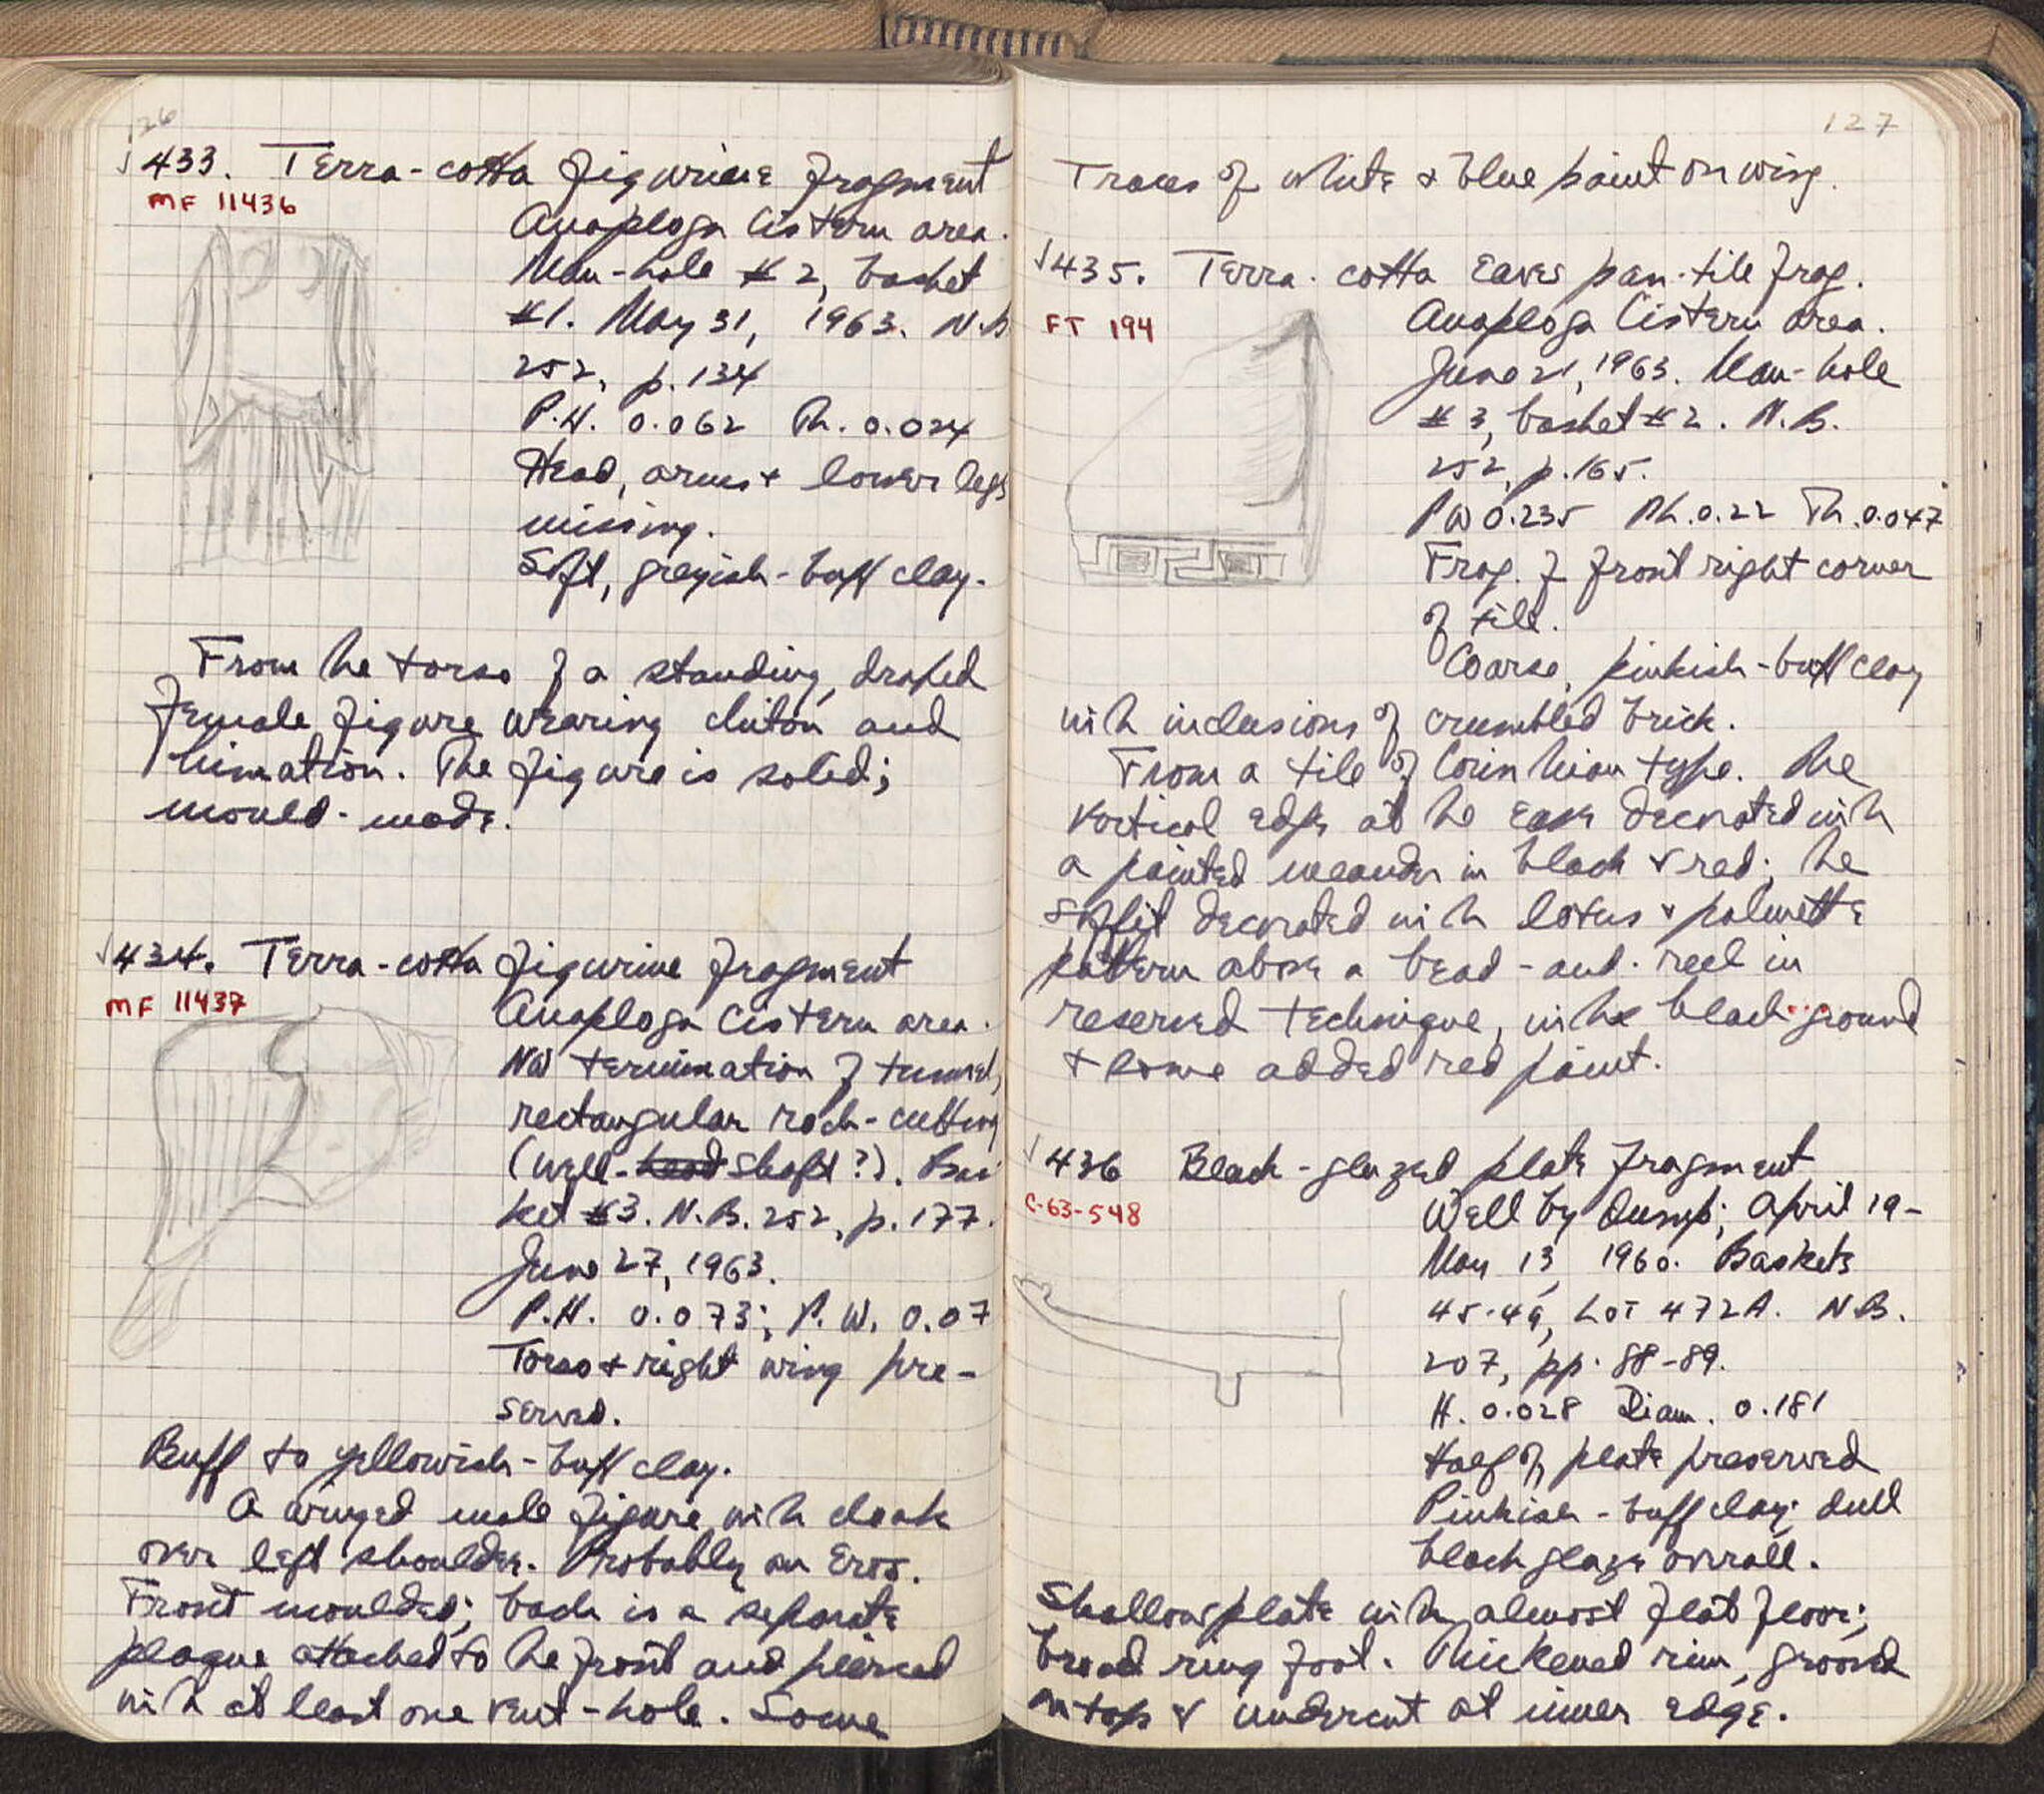 126
√433. Terra-cotta figurine fragment
MF 11436
Anaploga Cistern area.
Man-hole #2, basket
#1. May 31, 1963. N.B.
252, p. 134
P.H. 0.062 Th. 0.024
Head, arms + lower legs
missing.
Soft, greyish-buff clay.
From the torso of a standing, draped
female figure wearing chiton and
himation. The figure is solid;
mould-made.
√434. Terra-cotta figurine fragment
MF 11437
Anaploga Cistern area.
NW termination of tunnel,
rectangular rock-cutting
(well-head shaft?). Bas
ket #3. N.B. 252, p. 177.
June 27, 1963.
P.H. 0.073; P.W. 0.07
Torso + right wing pre-
served.
Buff to yellowish-buff clay.
A winged male figure with cloak
over left shoulder. Probably an Eros.
Front moulded; back is a separate
plaque attached to the front and pierced
with at least one vent-hole. Some
127
Traces of white + blue paint on wing.
√435. Terra-cotta Eaves pan-tile frag.
FT 194
Anaploga Cistern area.
June 21, 1963. Man-hole
#3, basket #2. N.B.
252, p. 165.
PW 0.235 Ph. 0.22 Th. 0.047
Frag. of front right corner
of tile.
Coarse, pinkish-buff clay
with inclusions of crumbled brick.
From a tile of Corinthian type. The
vertical edge at the eave decorated with
a painted meander in black + red; the
soffit decorated with lotus + palmette
pattern above a bead-and-reel in
reserved technique, with black ground
+ some added red paint.
√436 Black-glazed plate fragment
C-63-548
Well by Dump; April 19-
May 13, 1960. Baskets
45-49, Lot 472A. N.B.
207, pp. 88-89.
H. 0.028 Diam. 0.181
Half of plate preserved
Pinkish-buff clay; dull
black glaze overall.
Shallow plate with almost flat floor;
broad ring foot. Thickened rim, grooved
on top & undercut at inner edge.